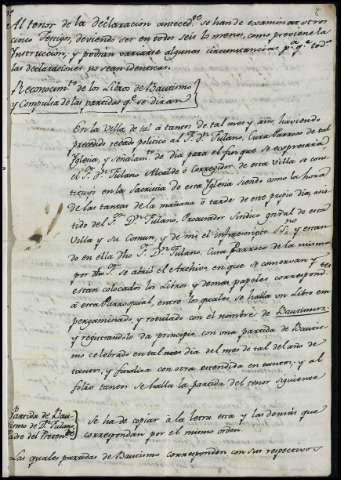 Al tenor de la declaracion anteced.te se han de examinar otros
cinco testigos, deviendo ser en todos seis lo menos, como previene la
Instruccion, y podrán variarse algunas circunstancias p.a q.e todas
las declaraciones no sean identicas.
Reconocim.to de los Libros de Bautismo
y Compulsa de las partidas q.e se dirán
En la Villa de tal á tantos de tal mes y año, haviendo
precedido recado politico al S.r D.n Fulano, Cura Parroco de tal
Iglesia, y señalam.to de dia para el fin que se expresará
el S.r D.n Fulano Alcalde ó Corregidor de esta Villa se cons-
tituyó en la Sacristia de esta Iglesia siendo como la hora
de las tantas de la mañana ó tarde de este propio dia, asis-
tido del S.r D.n Fulano, Procurador Sindico gral de esta
Villa y su Comun, y de mi el infraescripto Ss.no y estan-
do en ella dho S.r D.n Fulano Cura Parroco de la misma
por dho S.r se abrió el Archivo en que se conservan y
están colocados los Libros y demas papeles correspond.tes
á esta Parroquial, entre los quales se halla un libro em-
pergaminado y rotulado con el nombre de Bautismos
y registrandolo da principio con una partida de Bautis-
mo celebrado en tal mes dia del mes de tal del año de
tantos, y finaliza con otra extendida en tantos, y al
folio tantos se halla la partida del tenor siguiente
Partida de Bau-
tismo de D.n Fulano
Padre del Pretend.te
se ha de copiar á la letra esta y las demás que
correspondan por el mismo orden.
Las quales partidas de Bautismo corresponden con sus respectivos